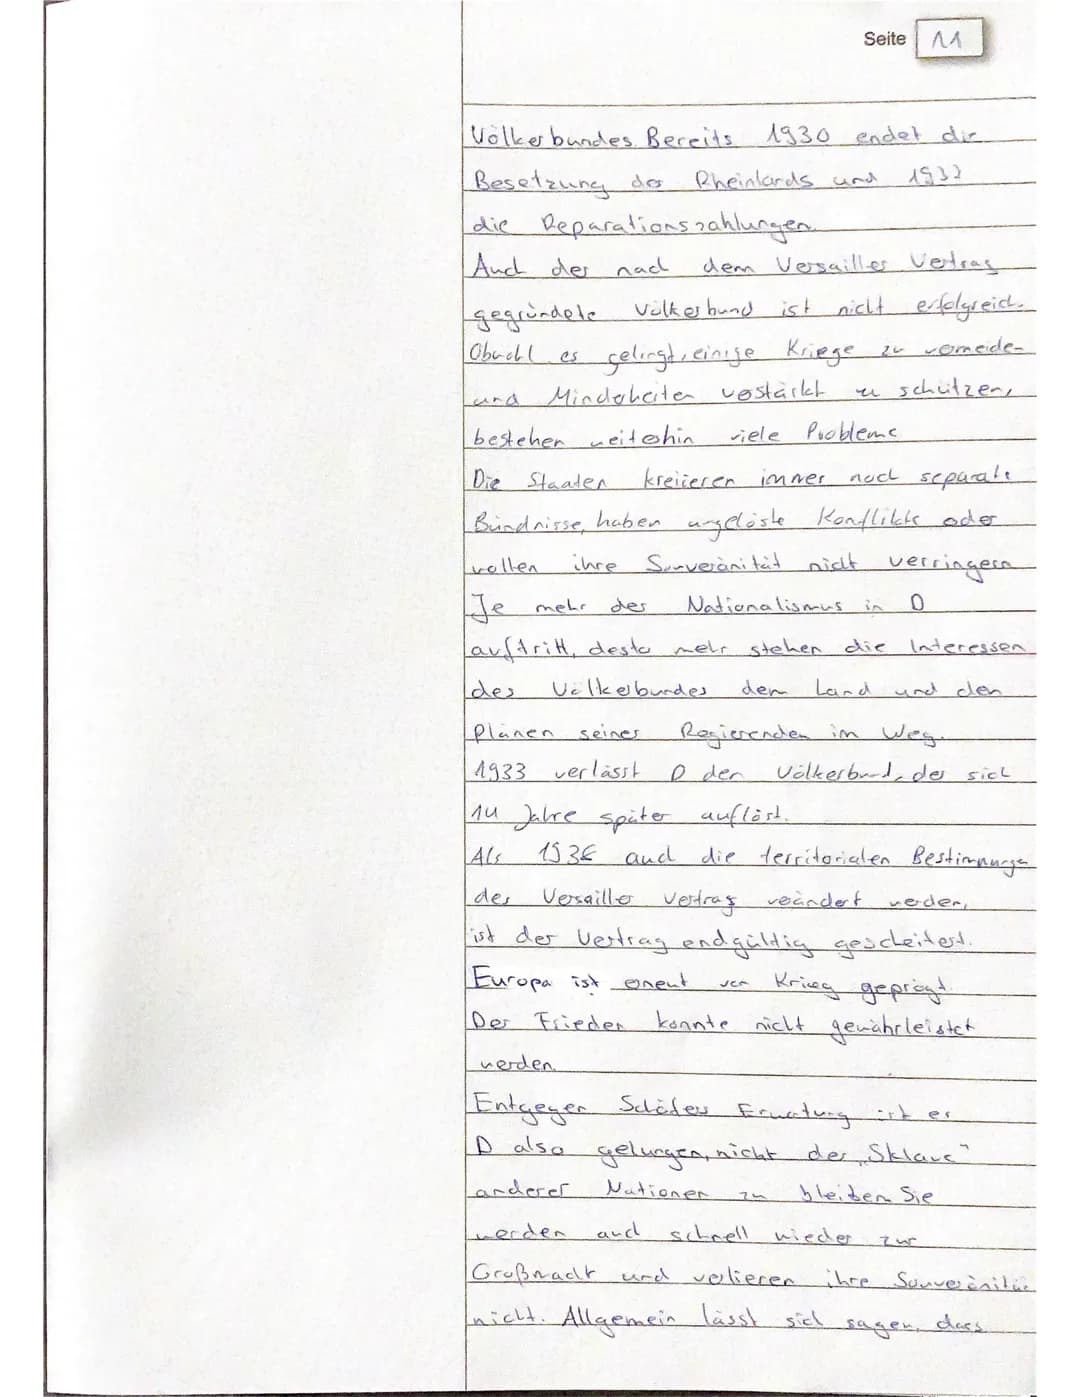 Seite 11
Völkerbundes. Bereits 1930 endet die
Besetzung des Rheinlands und 1932
die Reparationszahlungen.
Auch der nach dem Versailler Vertrag
gegründete Völkerbund ist nicht erfolgreich.
Obwohl es gelingt, einige Kriege zu vermeiden
und Minderheiten verstärkt zu schützen,
bestehen weiterhin viele Probleme
Die Staaten kreiieren immer noch separate
Bündnisse, haben ungelöste Konflikte oder
wollen ihre Souveränität nicht verringern
Je mehr der Nationalismus in D
auftritt, desto mehr stehen die Interessen
des Völkerbundes dem Land und den
Plänen seiner Regierenden im Weg.
1933 verlässt D den Völkerbund, der sich
14 Jahre später auflöst.
Als 1936 auch die territorialen Bestimmungen
des Versailler Vertrag verändert werden,
ist der Vertrag endgültig gescheitert.
Europa ist erneut von Krieg geprägt.
Der Frieden konnte nicht gewährleistet
werden.
Entgegen Schäfers Erwartung ist es
D also gelungen, nicht der „Sklave"
anderer Nationen zu bleiben. Sie
werden auch schnell wieder zur
Großmacht und verlieren ihre Souveränität
nicht. Allgemein lässt sich sagen, dass